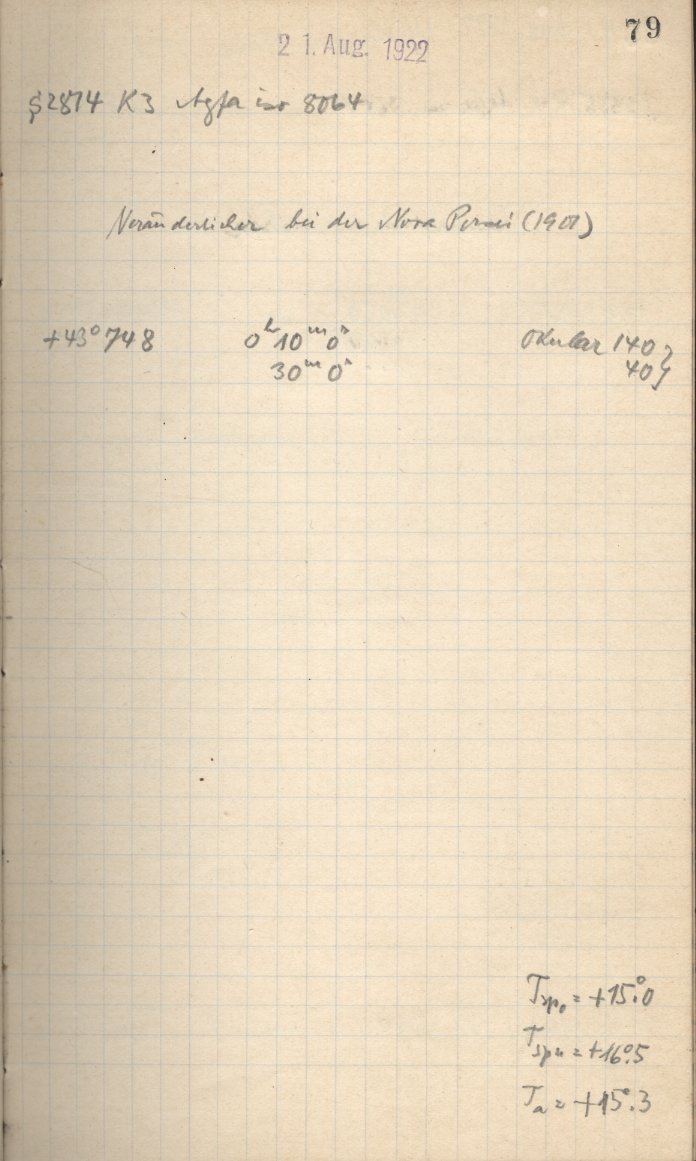 79
21. Aug. 1922
S2874 K3 Agfa iso 8064
Veränderlicher bei der Nova Persei (1901)
+43° 748 0ʰ 10ᵐ 0ˢ Okular 140
30ᵐ 0ˢ 40
T sp o = +15°.0
T sp u = +16°.5
Tₐ = +15°.3